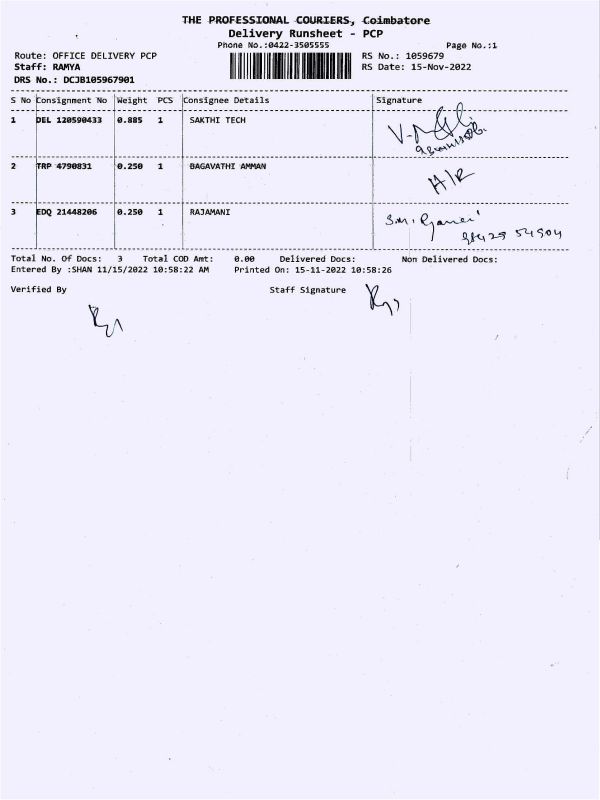 THE PROFESSIONAL COURIERS, Coimbatore
Delivery Runsheet - PCP
Phone No.:0422-3505555 Page No.:1
Route: OFFICE DELIVERY PCP RS No.: 1059679
Staff: RAMYA RS Date: 15-Nov-2022
DRS No.: DCJB105967901
S No Consignment No Weight PCS Consignee Details Signature
1 DEL 120590433 0.885 1 SAKTHI TECH
2 TRP 4790831 0.250 1 BAGAVATHI AMMAN H/R
3 EDQ 21448206 0.250 1 RAJAMANI
Total No. Of Docs: 3 Total COD Amt: 0.00 Delivered Docs: Non Delivered Docs:
Entered By :SHAN 11/15/2022 10:58:22 AM Printed On: 15-11-2022 10:58:26
Verified By Staff Signature